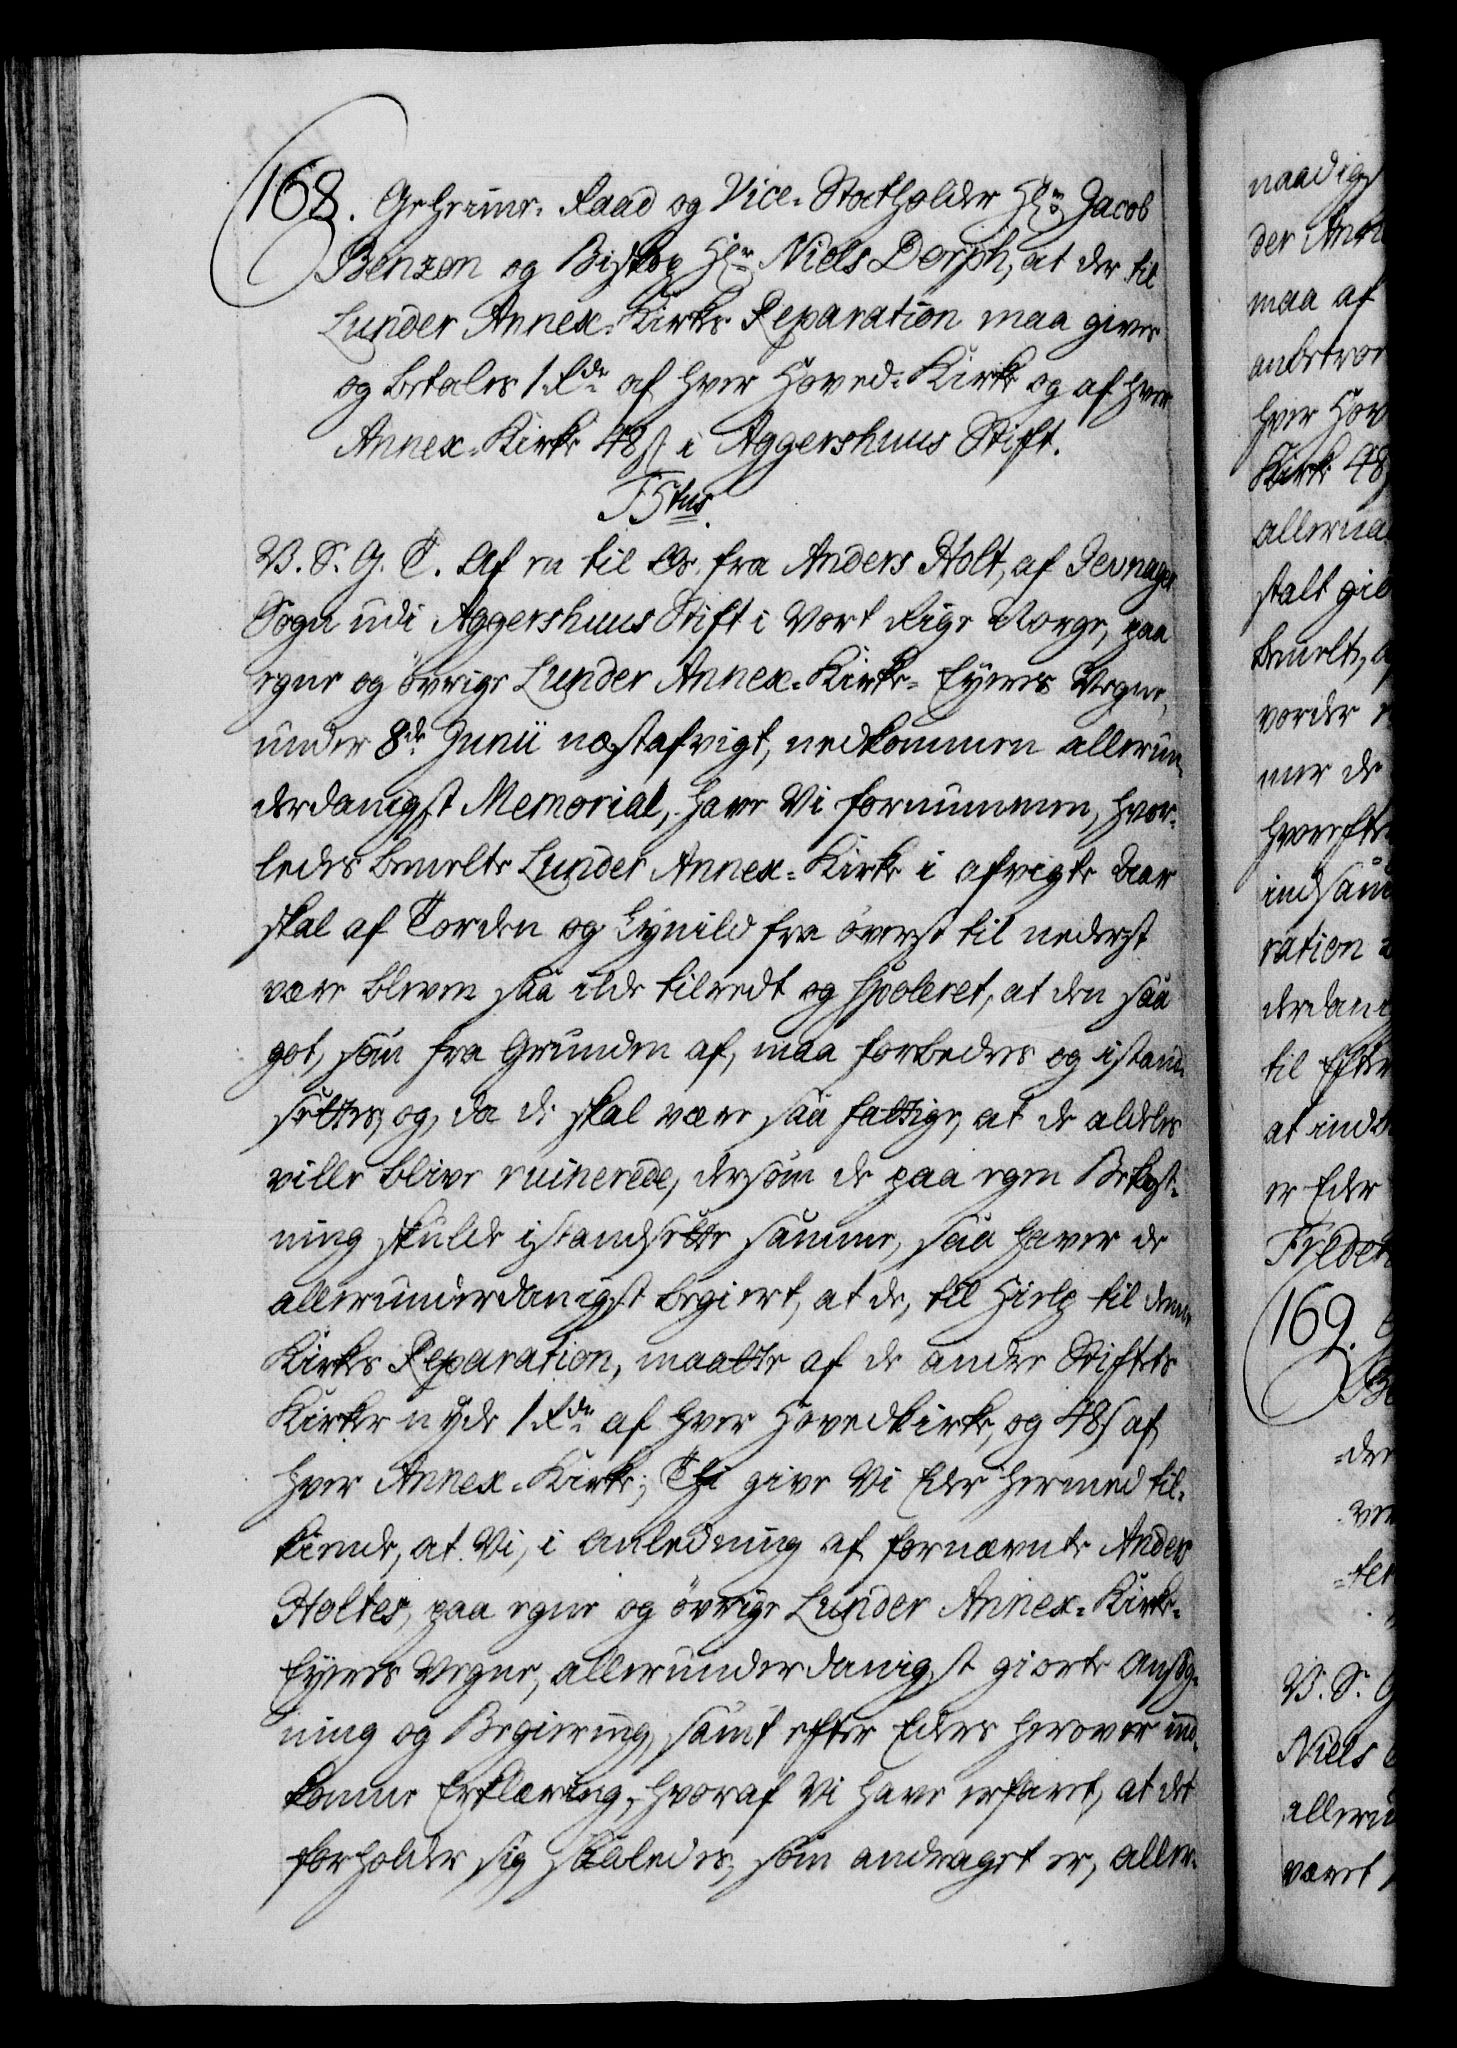 168. Geheime-Raad og Vice-Statholder Hr. Jacob
Benzon og Biskop Hr. Niels Dorph, at der til
Lunder Annex-Kirkes Reparation maa gives
og betales 1 Rdr. af hver Hoved-Kirke og af hver
Annex-Kirke 48 s i Aggershuus Stift.
F5tus.
V. S. G. T. Af en til Os fra Anders Holt, af Jevnager
Sogn udi Aggershuus Stift i Vort Rige Norge, paa
egne og øvrige Lunder Annex-Kirke-Eyeres Vegne,
under 8de Junii næstafvigt, nedkommen allerun-
derdanigst Memorial, have Vi fornummen, hvor-
ledes bemelte Lunder Annex-Kirke i afvigte Aar
skal af Torden og Lynild fra øverst til nederst
være bleven saa ilde tilredt og spoleret, at den saa
got, som fra Grunden af, maa forbedres og istand-
settes, og, da de skal være saa fattige, at de aldeles
ville blive ruinerede, dersom de paa egen Bekost-
ning skulde istandsette samme, saa haver de
allerunderdanigst begiert, at de, til Hielp til denne
Kirkes Reparation, maatte af de andre Stiftets
Kirker nyde 1 Rdr. af hver Hovedkirke, og 48 s af
hver Annex-Kirke; Thi give Vi Eder hermed til-
kiende, at Vi, i Anledning af fornævnte Anders
Holtes, paa egne og øvrige Lunder Annex-Kirke-
Eyeres Vegne, allerunderdanigst giorte Ansøg-
ning og Begiering, samt efter Eders herover ind-
komne Erklæring, hvoraf Vi have erfaret, at det
forholder sig saaledes, som andraget er, aller-
naadigst
der Ann
maa af
anbetroe
hver Hov
Kirke 48
allernaa
stalt gi
bemelte,
vorder
mer de
hvorefter
indsam
ration
derdani
til Efter
at ind
er Eder
Frider
169.
-der
V. S. G
Niels
alleru
været